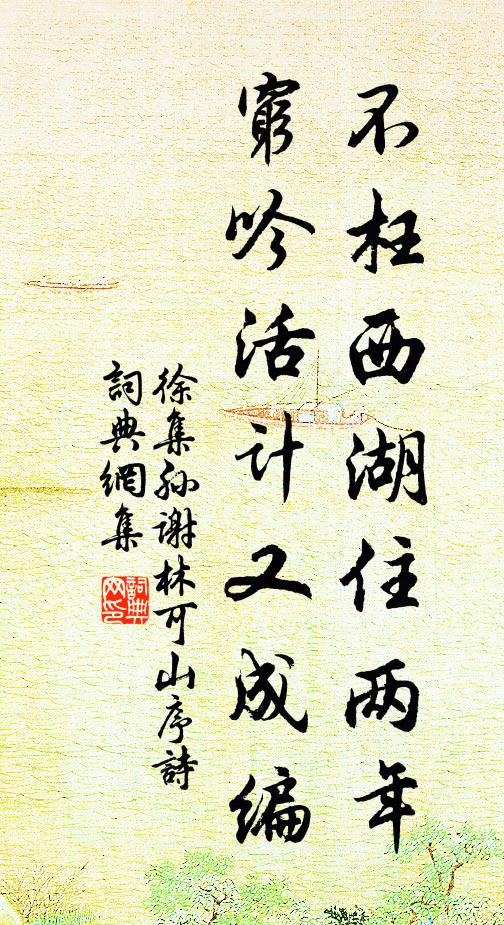 不枉西湖住两年
窮吟活计又成编
徐集孙谢林可山序詩
詞典網集
詞典網印